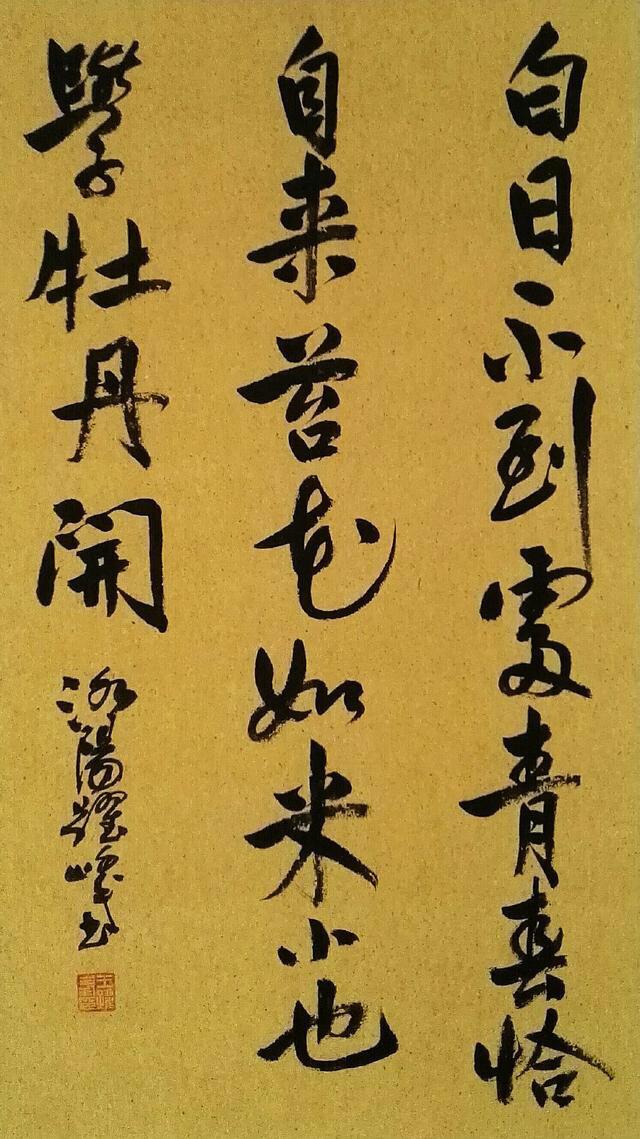 白日不到處青春恰
自来苔花如米小也
學牡丹開
洛陽